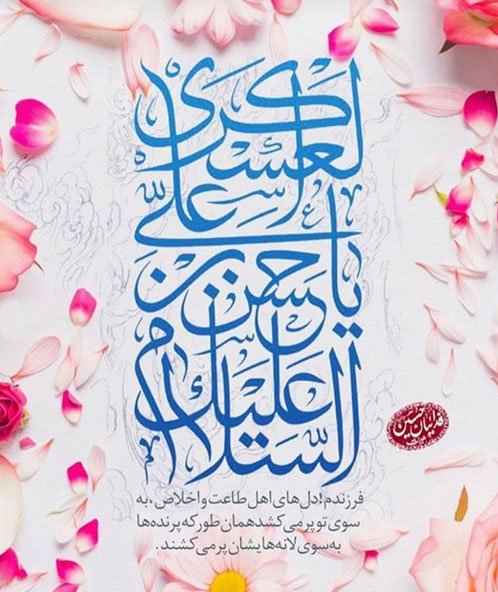 السلام علیک
یا حسن بن
علی العسکری
فدائیان حسین
فرزندم! دل‌های اهل طاعت و اخلاص، به
سوی تو پر می‌کشد همان طور که پرنده‌ها
به سوی لانه‌هایشان پر می‌کشند.